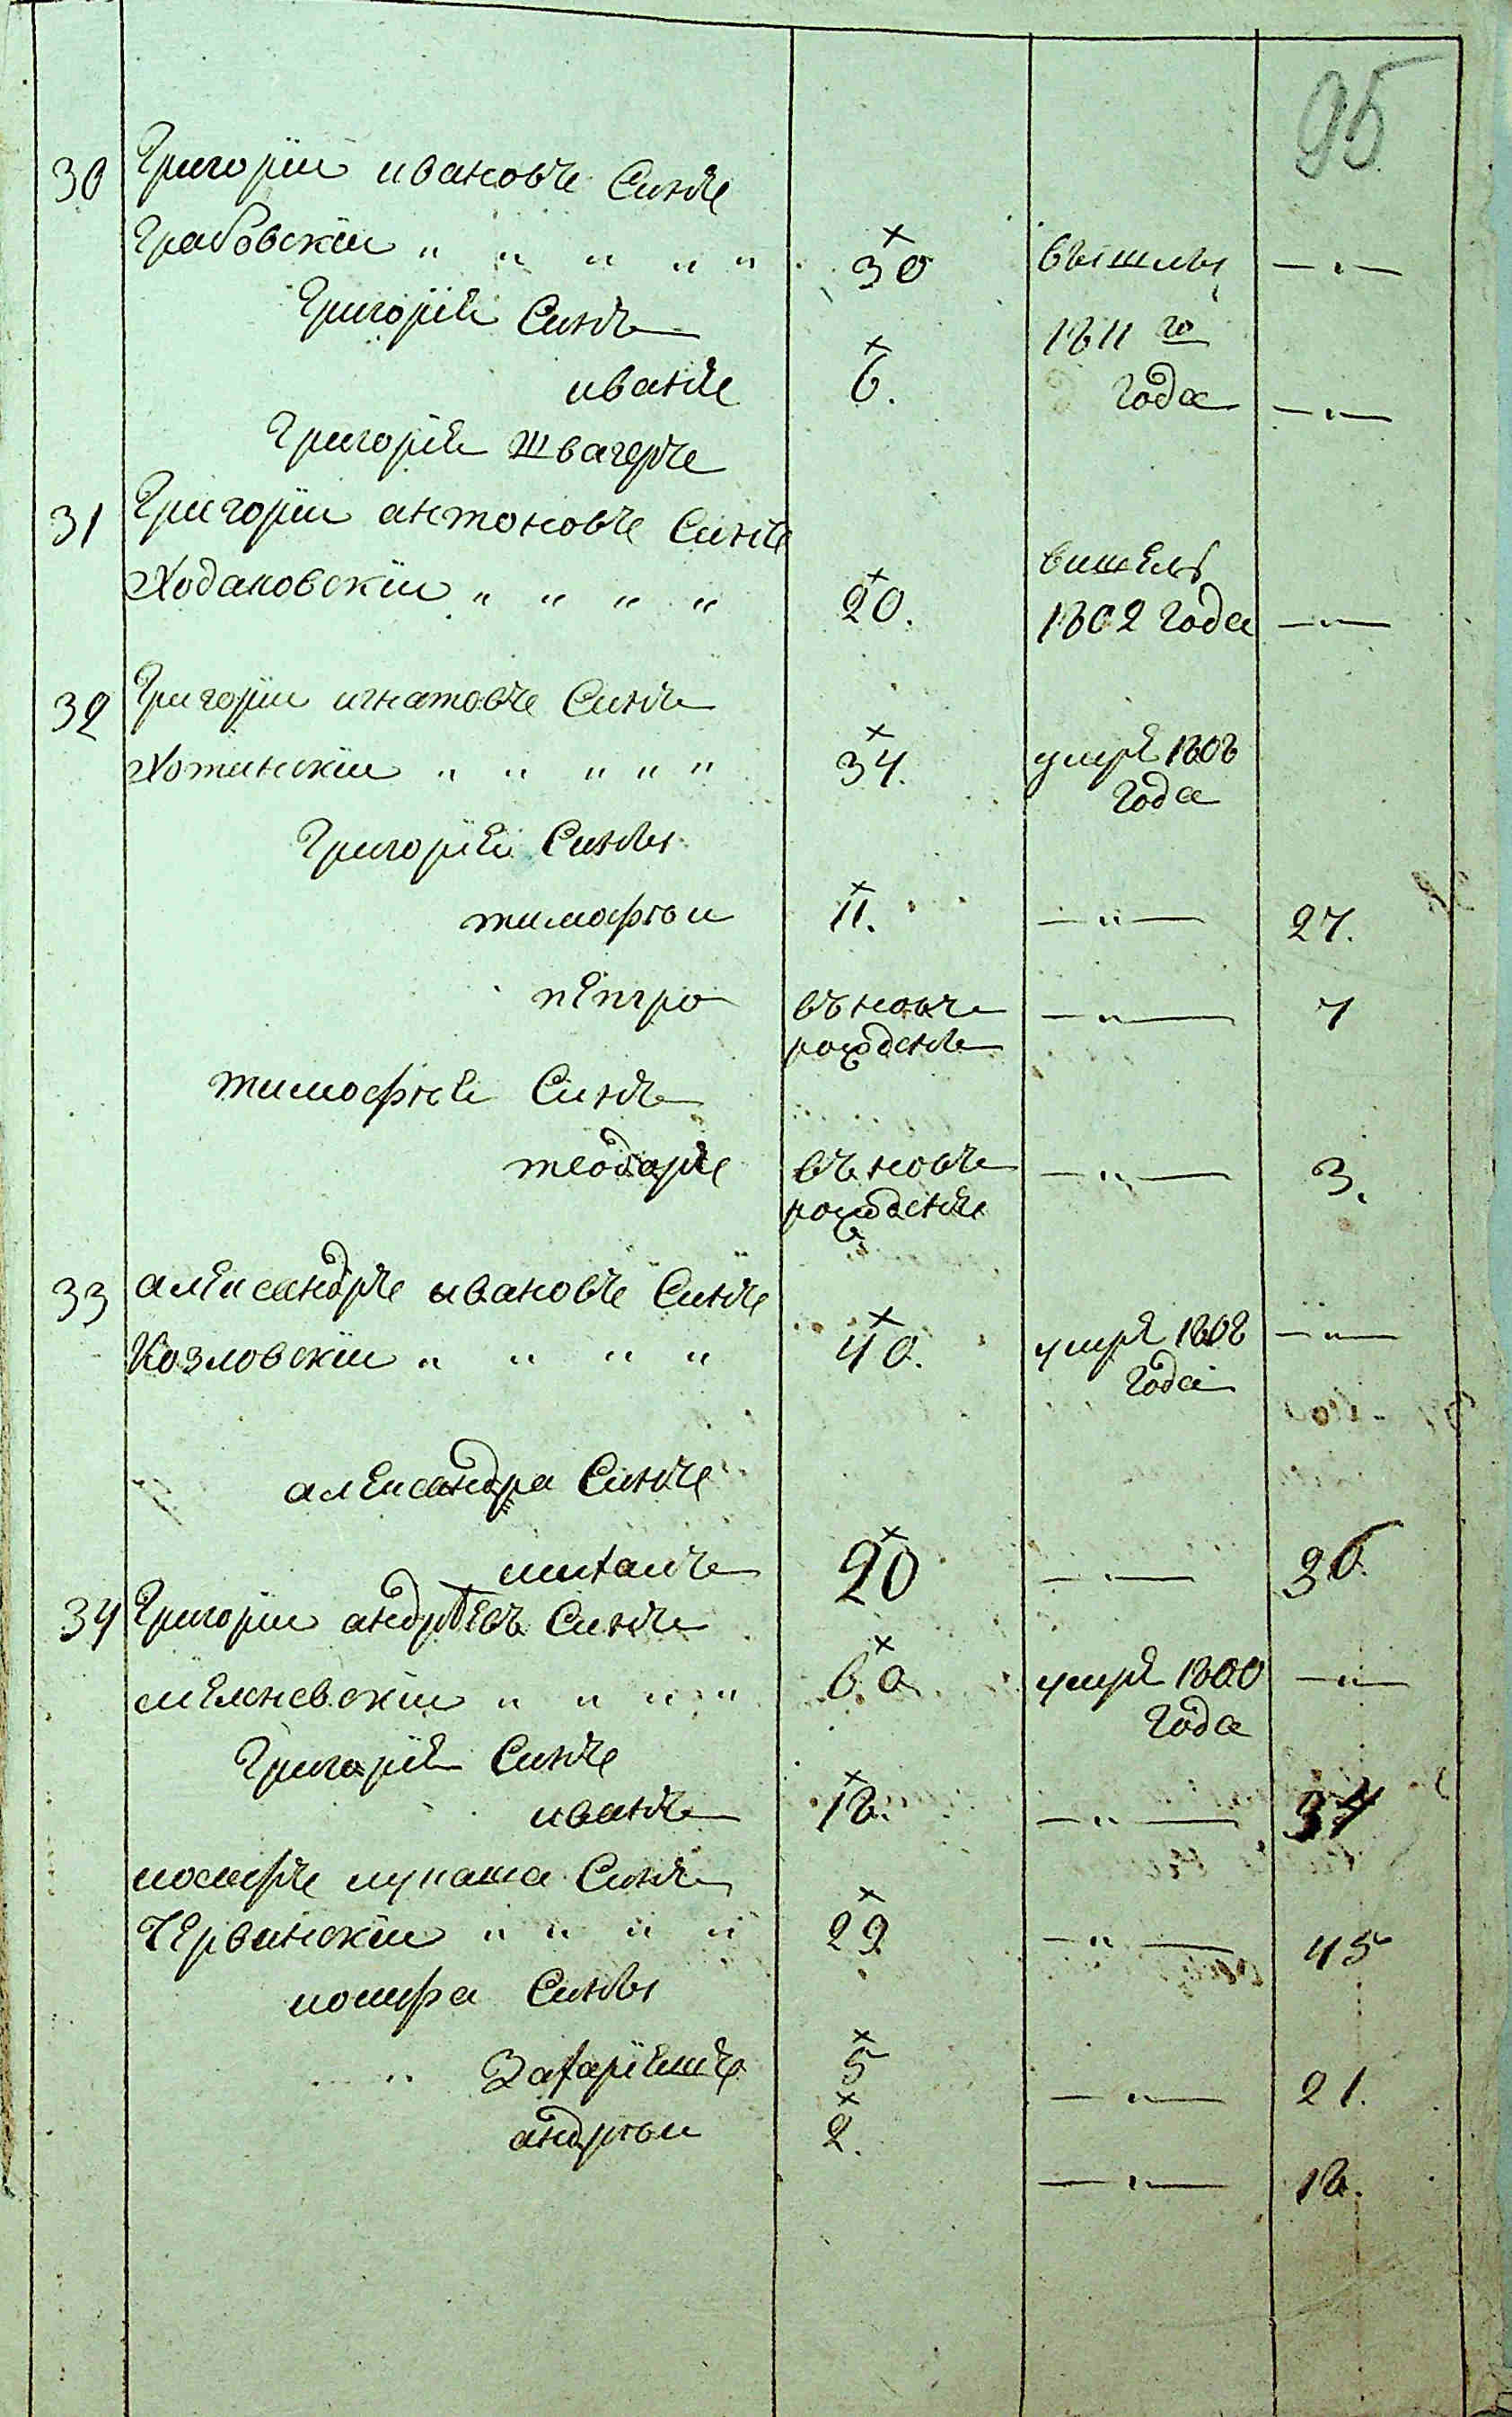 95
30 Григорiи ивановъ Синъ
Грабовскiи " " " " " 30 вышлы — " —
Григорiя Синъ 1811 го
иванъ 6. года — " —
Григорiя швагеръ
31 Григорiи антоновъ Синъ вишелъ
Ходаковскiи " " " " 20. 1802 года — " —
32 Григорiи игнатовъ Синъ
Хотинскiи " " " " " 34. умре 1808
года
Григорiя Сины
тимофѣи 11. — " — 27.
петро въновъ — " — 7
рожденъ
тимофѣя Синъ
теодоръ въновъ — " — 3.
рожденъ
33 александръ ивановъ Синъ
Козловскiи " " " " 40. умре 1808 — " —
года
александра Синъ
михаилъ 20 — " — 36.
34 Григорiи андрѣевъ Синъ
мелневскiи " " " " 60 умре 1800 — " —
года
Григорiя Синъ
иванъ 18. — " — 34
иосифъ лукаша Синъ
Червинскiи " " " " 29. — " — 45
иосифа Сины
Захарiяшъ 5 — " — 21.
андрѣи 2. — " — 18.